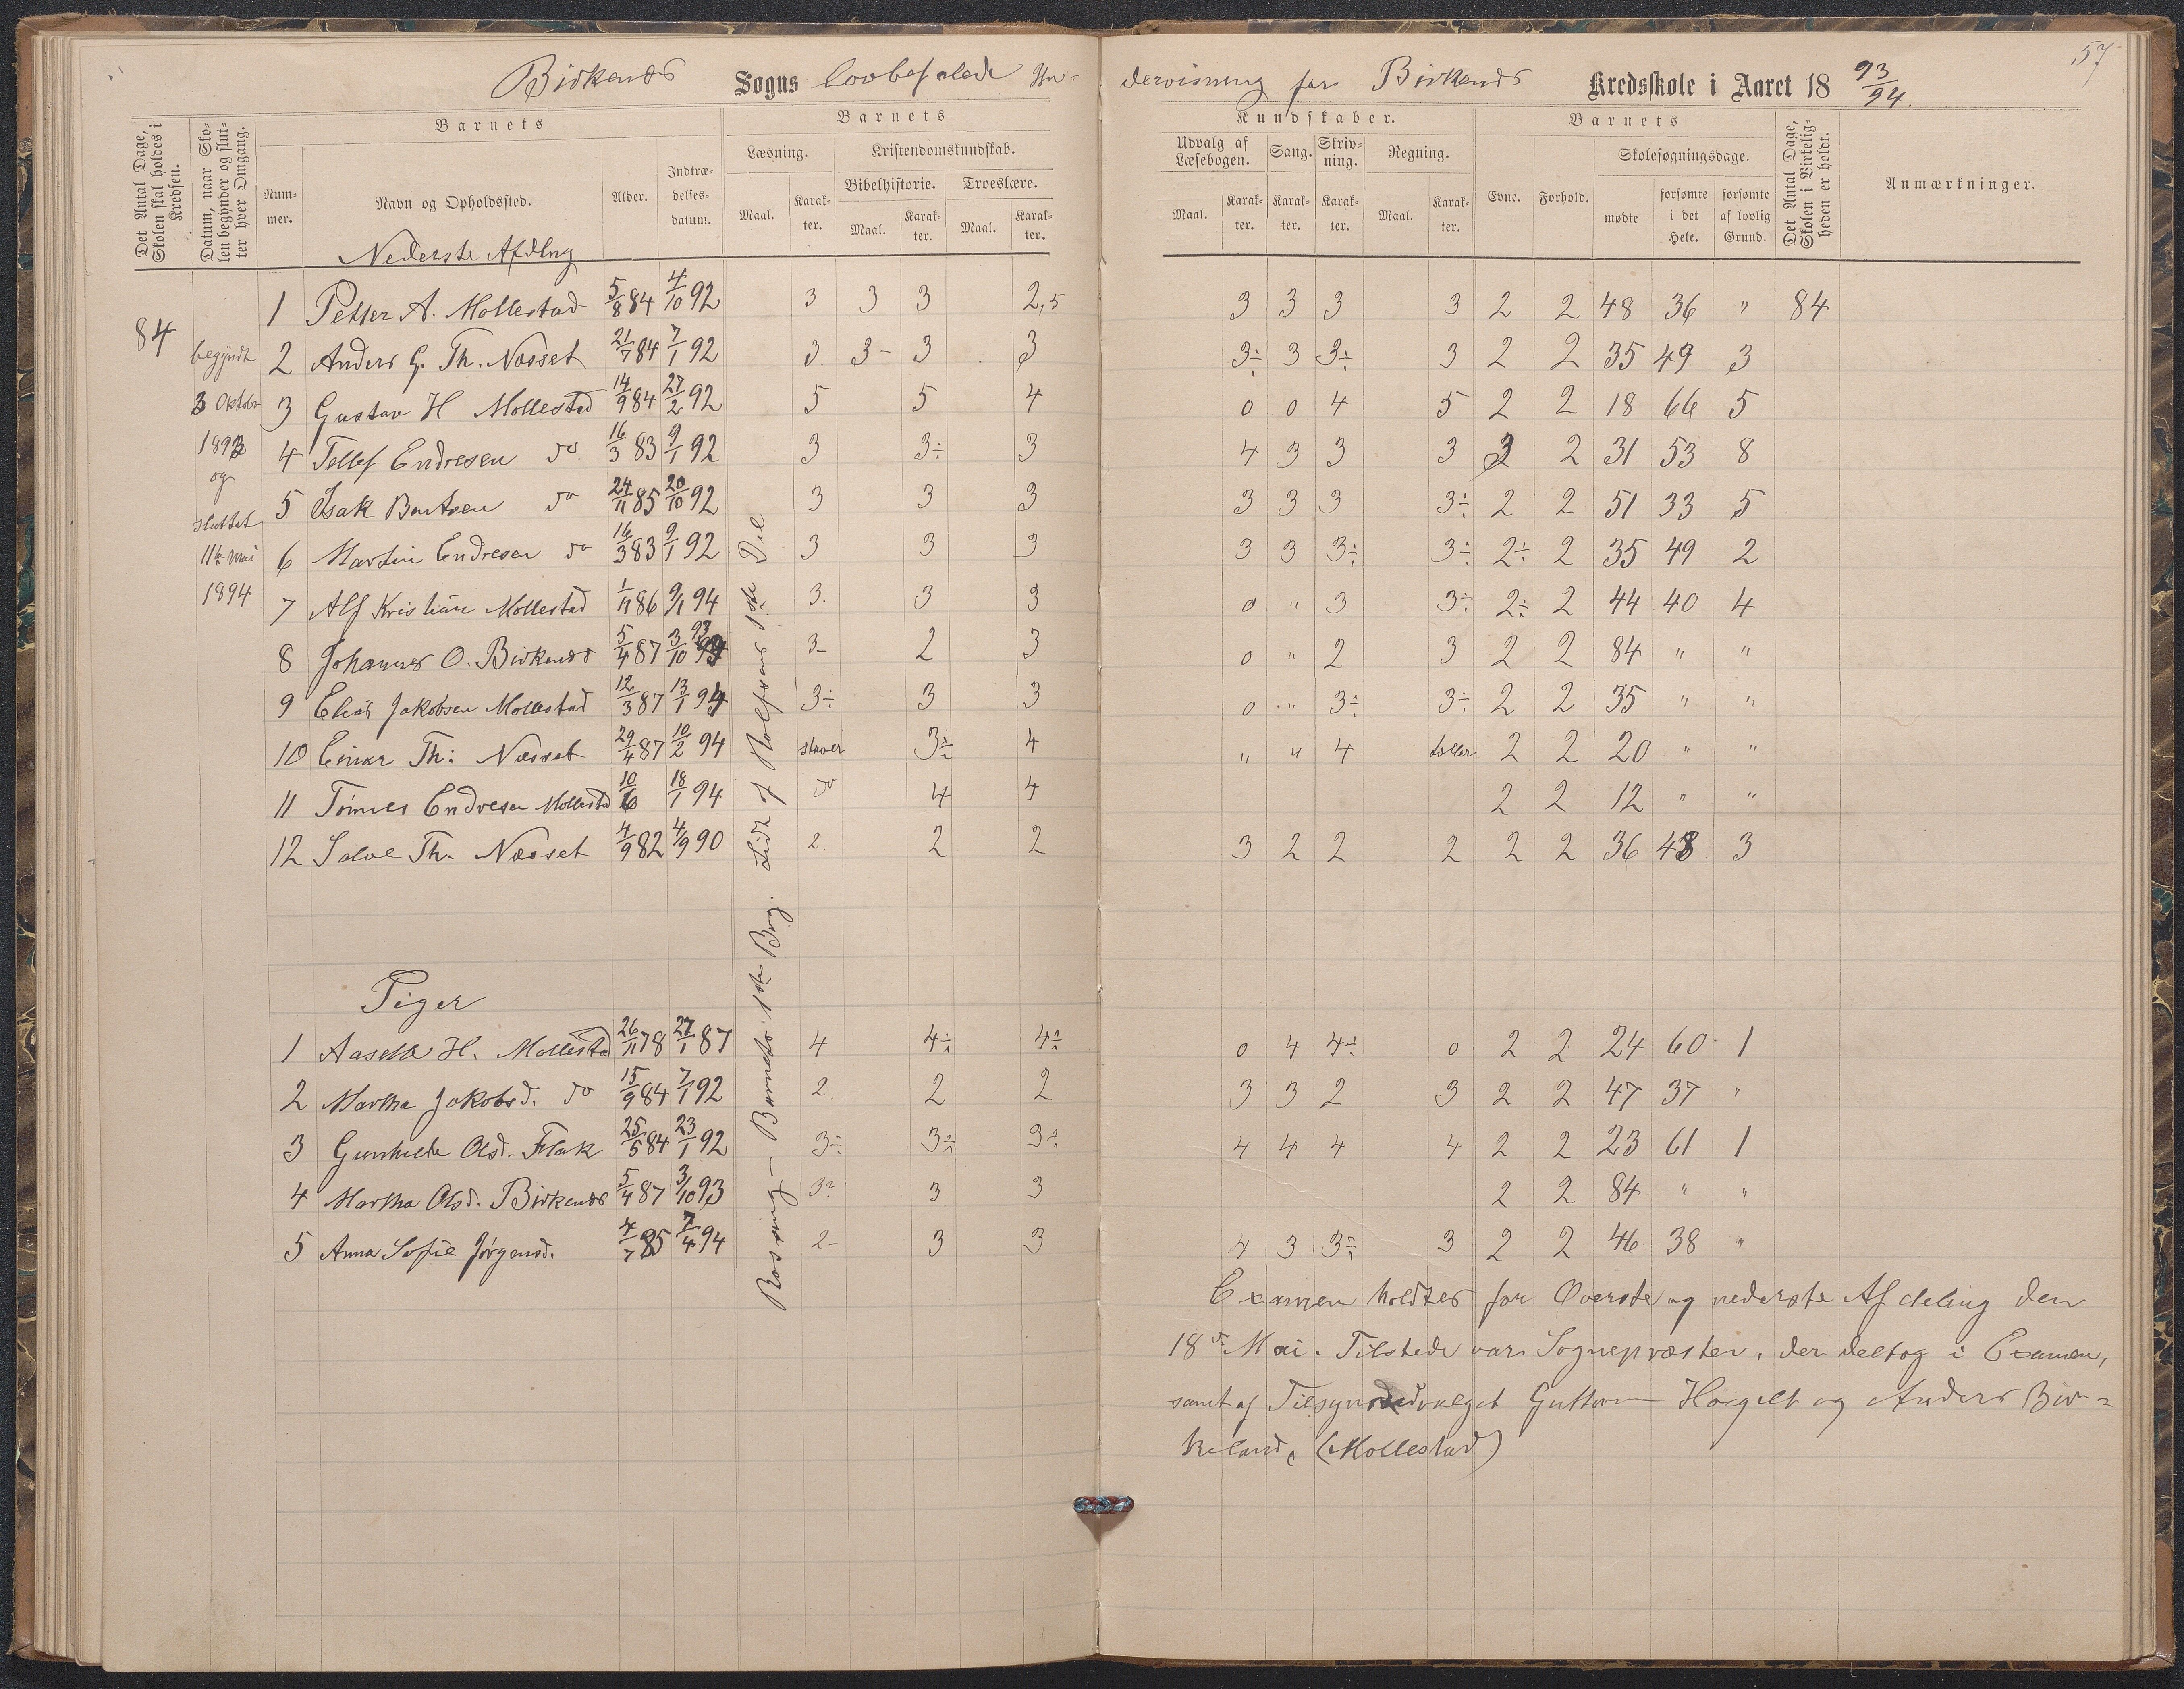 57
Birkenes Sogns lovbefalede Un- dervisning for Birkenes Kredsskole i Aaret 18 93/94.
Det Antal Dage, Skolen skal holdes i Kredsen.
Datum, naar Skolen begynder og slutter hver Omgang.
Barnets
Nummer.
Navn og Opholdssted.
Alder.
Indtrædelsesdatum.
Barnets
Læsning.
Maal.
Karakter.
Kristendomskundskab.
Bibelhistorie.
Maal.
Karakter.
Troeslære.
Maal.
Karakter.
Kundskaber.
Udvalg af Læsebogen.
Maal.
Karakter.
Sang.
Karakter.
Skrivning.
Karakter.
Regning.
Maal.
Karakter.
Barnets
Evne.
Forhold.
Skolesøgningsdage.
mødte
forsømte i det Hele.
forsømte af lovlig Grund.
Det Antal Dage, Skolen i Virkeligheden er holdt.
Anmærkninger.
Nederste Afdlng
84
begyndt
3 Oktobr
1893
og
sluttet
11te Mai
1894
1 Petter A. Mollestad 5/8 84 4/10 92 3 3 3 2,5 3 3 3 3 2 2 48 36 " 84
2 Anders G. Th. Næsset 21/7 84 7/1 92 3. 3- 3 3 3÷ 3 3÷ 3 2 2 35 49 3
3 Gustav H Mollestad 14/9 84 27/2 92 5 5 4 0 0 4 5 2 2 18 66 5
4 Tellef Endresen do 16/3 83 9/1 92 3 3÷ 3 4 3 3 3 2 2 31 53 8
5 Isak Bentsen do 24/11 85 20/10 92 3 3 3 3 3 3 3÷ 2 2 51 33 5
6 Martin Endresen do 16/3 83 9/1 92 3 3 3 3 3 3÷ 3÷ 2÷ 2 35 49 2
7 Alf Kristian Mollestad 1/11 86 9/1 94 3. 3 3 0 " 3 3÷ 2÷ 2 44 40 4
8 Johannes O. Birkenes 5/4 87 3/10 93 3- 2 3 0 " 2 3 2 2 84 " "
9 Elias Jakobsen Mollestad 12/3 87 13/1 94 3÷ 3 3 0 " 3÷ 3÷ 2 2 35 " "
10 Einar Th: Næsset 29/4 87 10/2 94 staver 3÷ 4 " " 4 tæller 2 2 20 " "
11 Tomes Endresen Mollestad 10/6 18/1 94 do 4 4 2 2 12 " "
12 Salve Th. Næsset 4/9 82 4/9 90 2. 2 2 3 2 2 2 2 2 36 48 3
Piger
1 Aaselle H. Mollestad 26/11 78 27/1 87 4 4÷ 4÷ 0 4 4÷ 0 2 2 24 60 1
2 Martha Jakobsd. do 15/9 84 7/1 92 2. 2 2 3 3 2 3 2 2 47 37 "
3 Gunhilde Olsd. Flak 25/5 84 23/1 92 3÷ 3÷ 3÷ 4 4 4 4 2 2 23 61 1
4 Martha Olsd. Birkenes 5/4 87 3/10 93 3? 3 3 2 2 84 " "
5 Anna Sofie Jørgensd. 4/7 85 7/4 94 2- 3 3 4 3 3÷ 3 2 2 46 38 "
1ste Bog. Lidt af Rolfsens 1ste Del
Examen holdtes for Øverste og nederste Afdeling den
18de Mai. Tilstede var Sognepræsten, der deltog i Examen,
samt af Tilsynsudvalget Guttorm Høygilt og Anders Bir-
keland, (Mollestad)